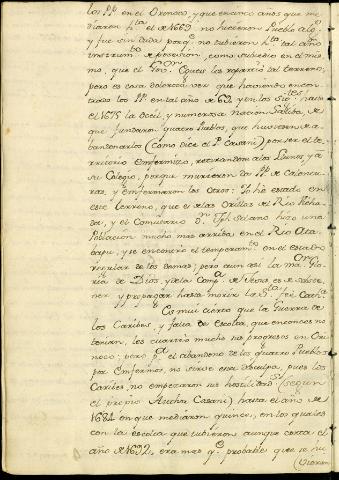 los PP. en el Orinoco, y que en cinco años que me
diaron hta. el de 1669 no hicieron Pueblo alg.
y fue sin duda porq. no tubieron hta. tal año
instrumto. de posesión, como sucedio en el mis
mo, que el Gor. les repartió tal terreno,
pero es cosa dolorosa ver que haviendo encon
trado los PP. en tal año de 69 y en los sigtes. hasta
el 1675 la docil, y numerosa Nacion Saliba, de
que fundaron quatro Pueblos, que huviesen de a
bandonarlos (como dice el P. Casani) por ser el te
rritorio enfermizo, retirandose a los Llanos, y a
su Colegio, porque murieron los PP. de calentu
ras, y enfermaron los otros: Yo he estado en
ese terreno, que es a las Orillas del Rio
y el Comisario Dn. Jph. Solano hizo una
Poblacion mucho mas arriba en el Rio Ata
bapu, y se encontro el temperamto. en el estado
regular de los demas; pero aun asi la maor. Glo
ria de Dios, y de la Compa. de Jesus, es de
y propagar hasta morir la Sta. feé Catca.
Es muy cierto que la Guerra de
los Caribes, y falta de Escolta, que entonces no
tenian, les quartó mucho los progresos en Ori
noco: pero pa. el abandono de los quatro Pueblos
por Enfermos, no sirve esa disculpa, pues los
Caribes, no empezaron sus hostilidads. (segun
el propio Author Casani) hasta el año de
1684 en que mediaron quince, en los quales
con la escolta que tubieron aunque corta el
año de 1692, era mas qe. probables que se hu
vieran